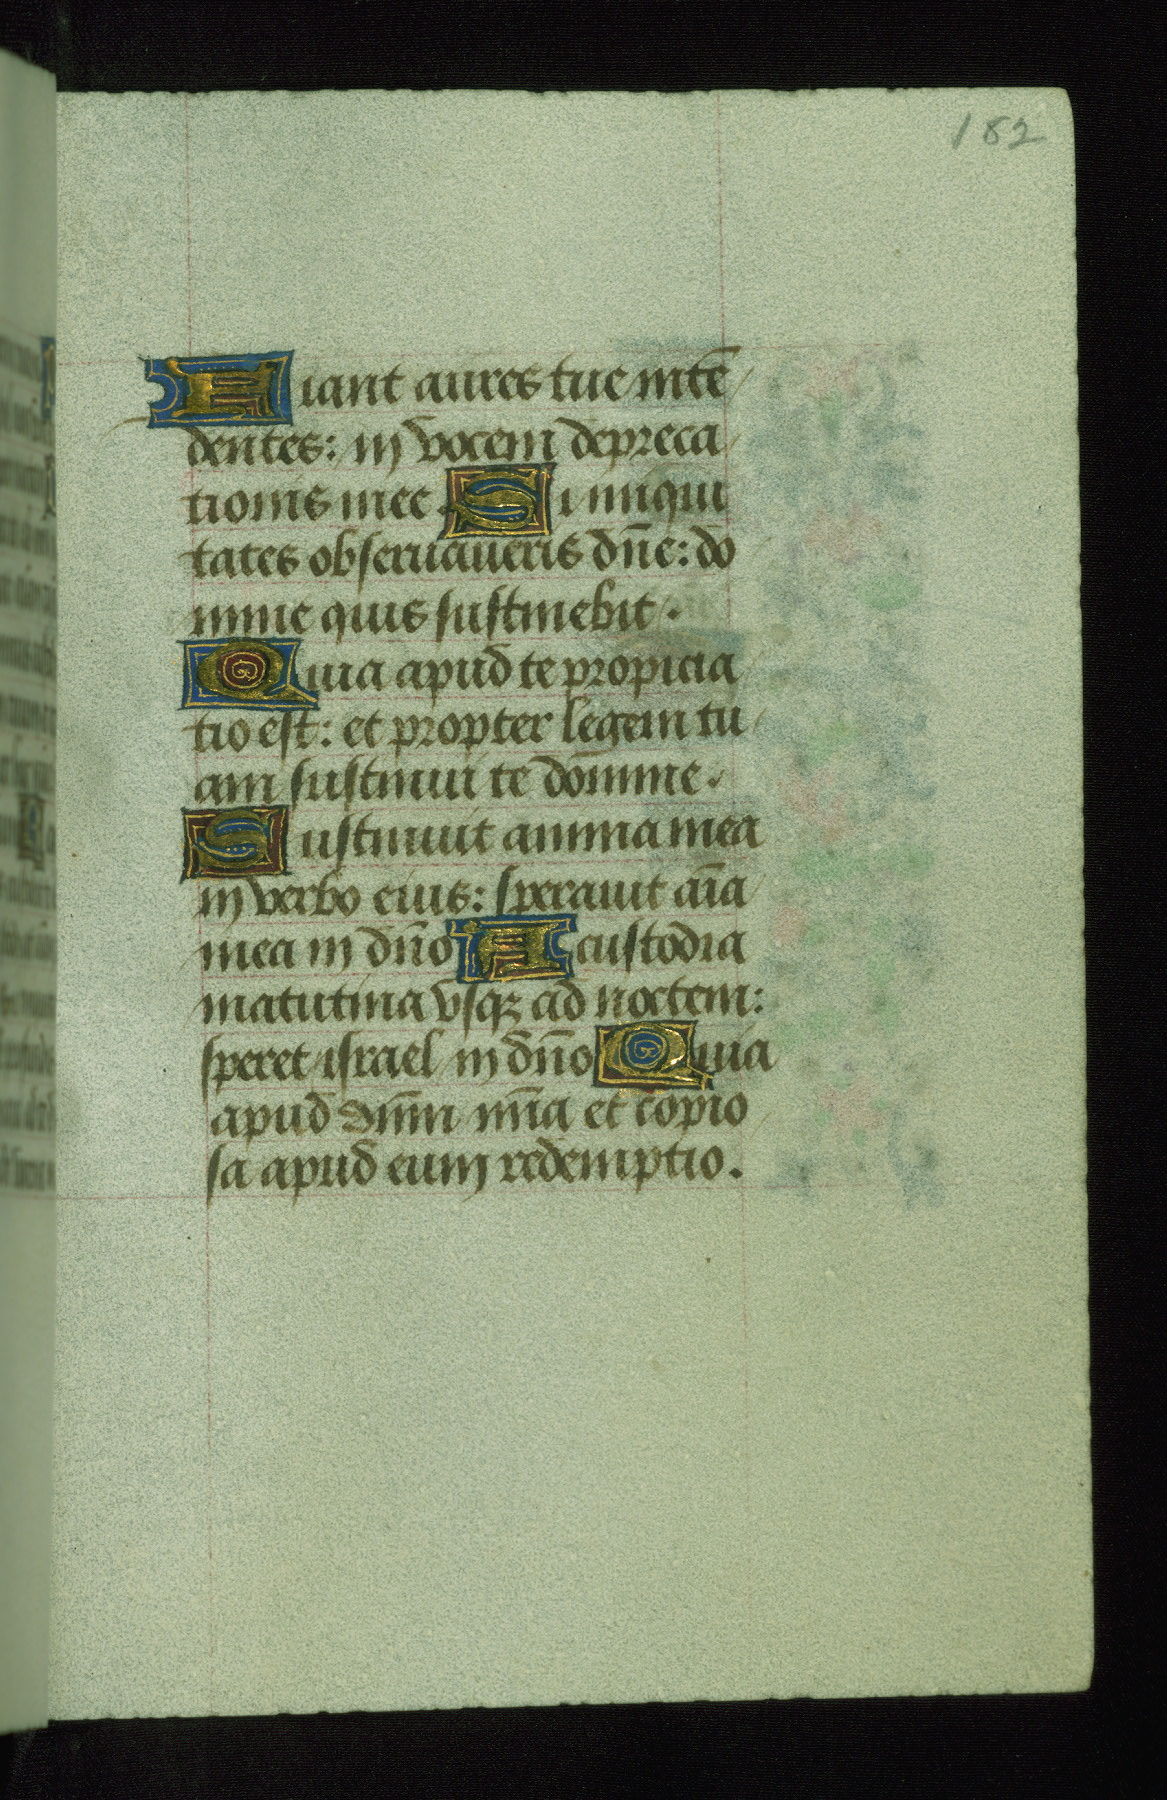 182
Fiant aures tue intē
dentes: in vocem depreca
tionis mee. Si iniqui
tates obseruaueris dn̄e: do
mine quis sustinebit.
Quia apud te propicia
tio est: et propter legem tu
am sustinui te domine.
Sustinuit anima mea
in verbo eius: sperauit aīa
mea in dn̄o A custodia
matutina vsqꝫ ad noctem:
speret israel in dn̄o Quia
apud dn̄m mīa et copio
sa apud eum redemptio.